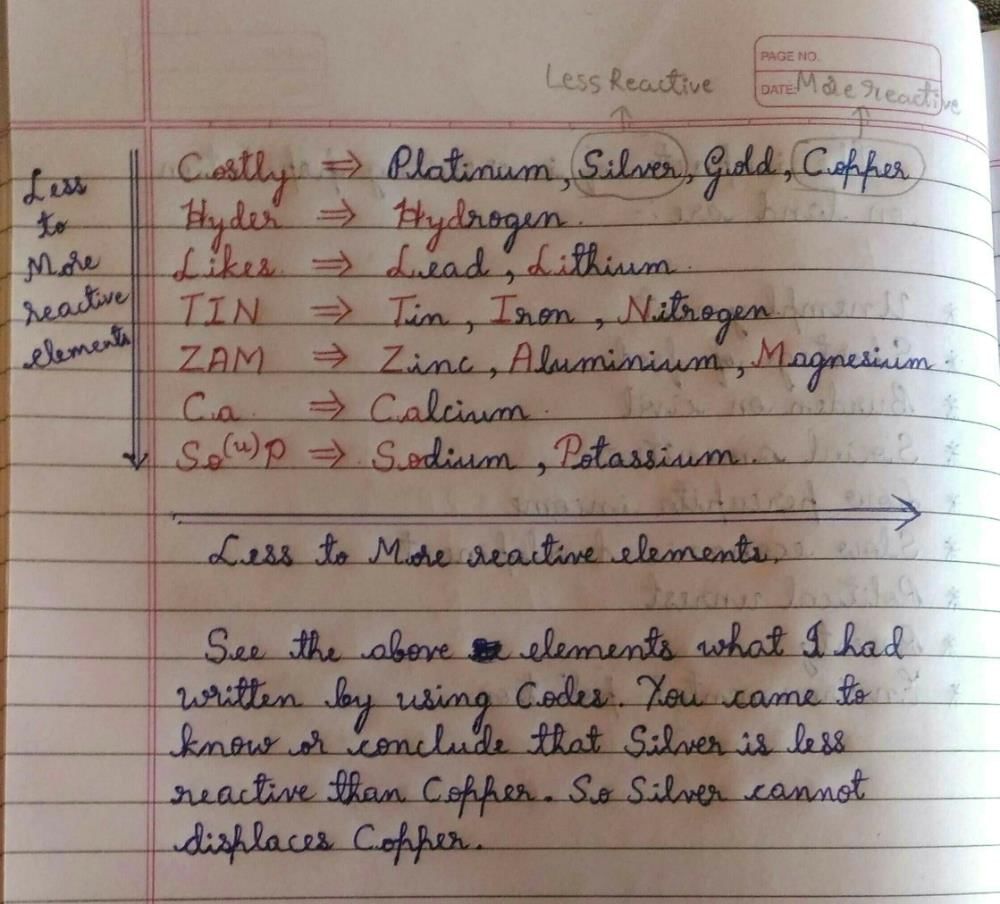 PAGE NO.
Less Reactive
DATE: More reactive
Less
to
More
reactive
elements
Costly ⇒ Platinum, Silver, Gold, Copper
Hyder ⇒ Hydrogen.
Likes ⇒ Lead, Lithium.
TIN ⇒ Tin, Iron, Nitrogen
ZAM ⇒ Zinc, Aluminium, Magnesium
Ca ⇒ Calcium.
So(u)P ⇒ Sodium, Potassium.
Less to More reactive elements.
See the above elements what I had
written by using Codes. You came to
know or conclude that Silver is less
reactive than Copper. So Silver cannot
displaces Copper.